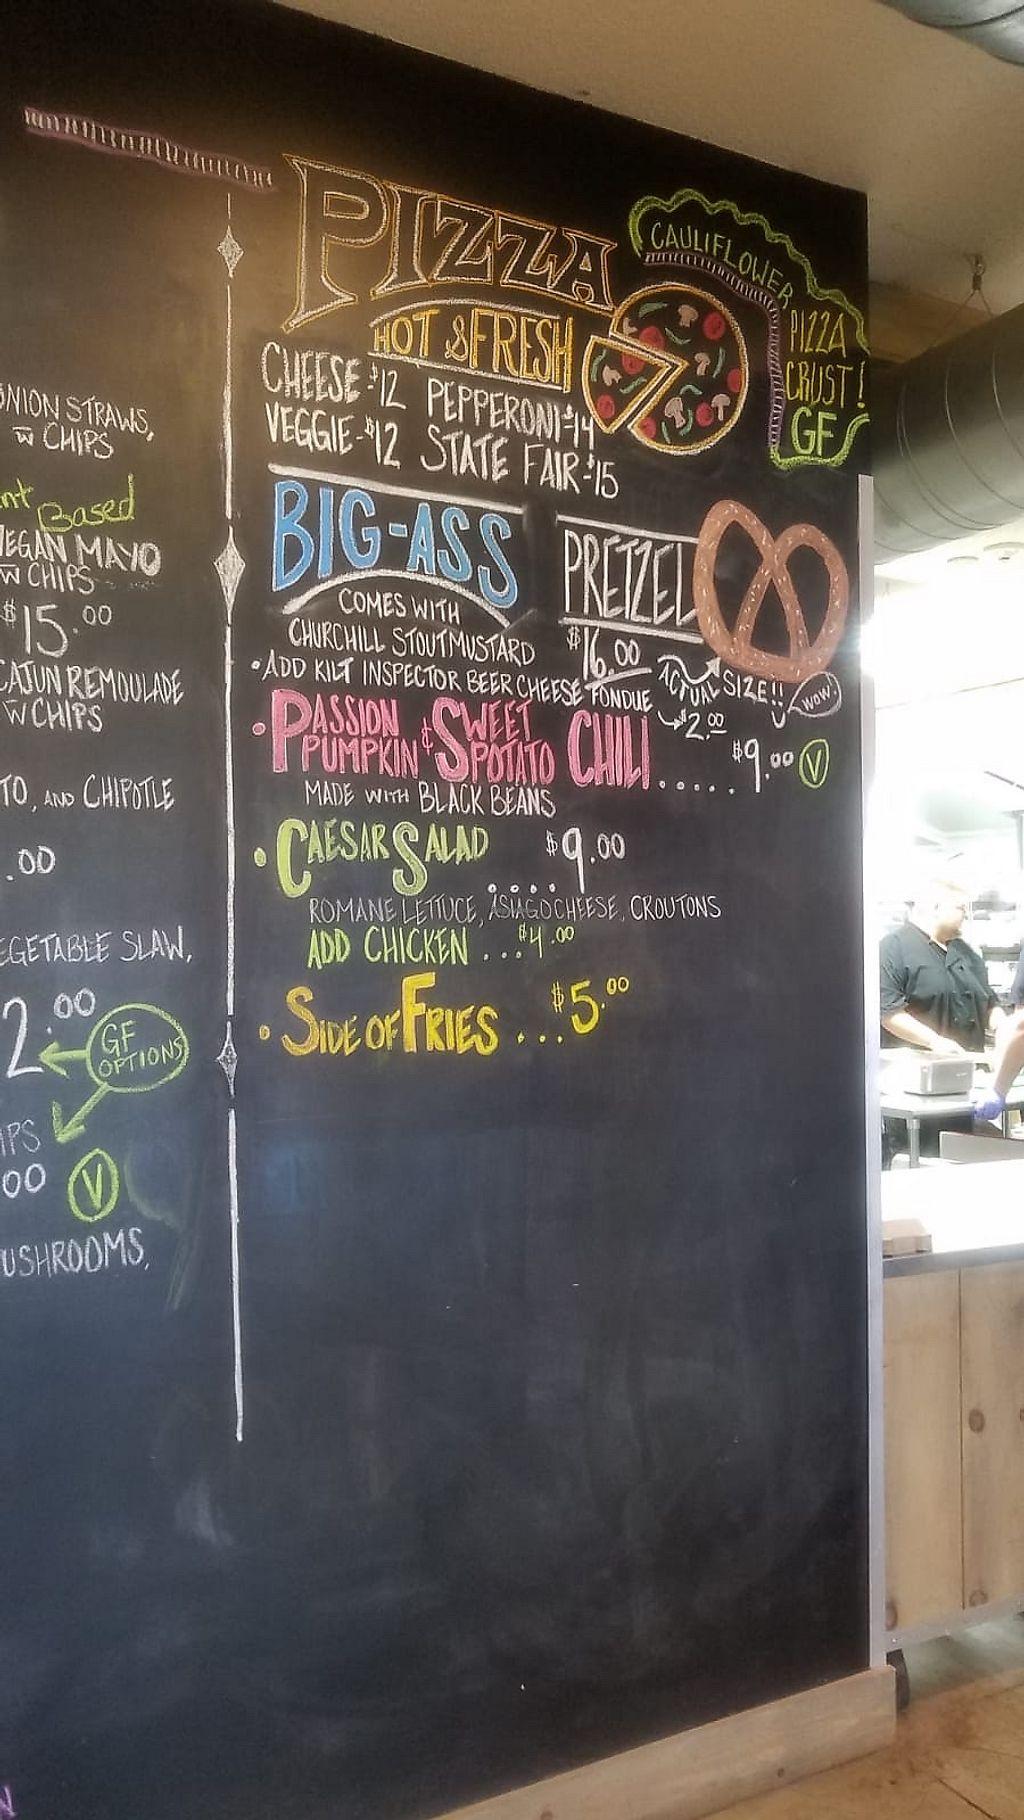 ONION STRAWS,
W CHIPS
Based
VEGAN MAYO
W CHIPS
$15.00
CAJUN REMOULADE
W CHIPS
AND CHIPOTLE
.00
VEGETABLE SLAW,
2.00
GF
OPTIONS
00 V
MUSHROOMS,
PIZZA
HOT & FRESH
CAULIFLOWER
PIZZA
CRUST!
GF
CHEESE-$12 PEPPERONI-$14
VEGGIE-$12 STATE FAIR-$15
BIG-ASS PRETZEL
COMES WITH
CHURCHILL STOUT MUSTARD $16.00
• ADD KILT INSPECTOR BEER CHEESE FONDUE $2.00
ACTUAL SIZE!!
WOW!
• PASSION PUMPKIN & SWEET POTATO CHILI ..... $9.00 V
MADE WITH BLACK BEANS
• CAESAR SALAD .... $9.00
ROMANE LETTUCE, ASIAGO CHEESE, CROUTONS
ADD CHICKEN ... $4.00
• SIDE OF FRIES ... $5.00